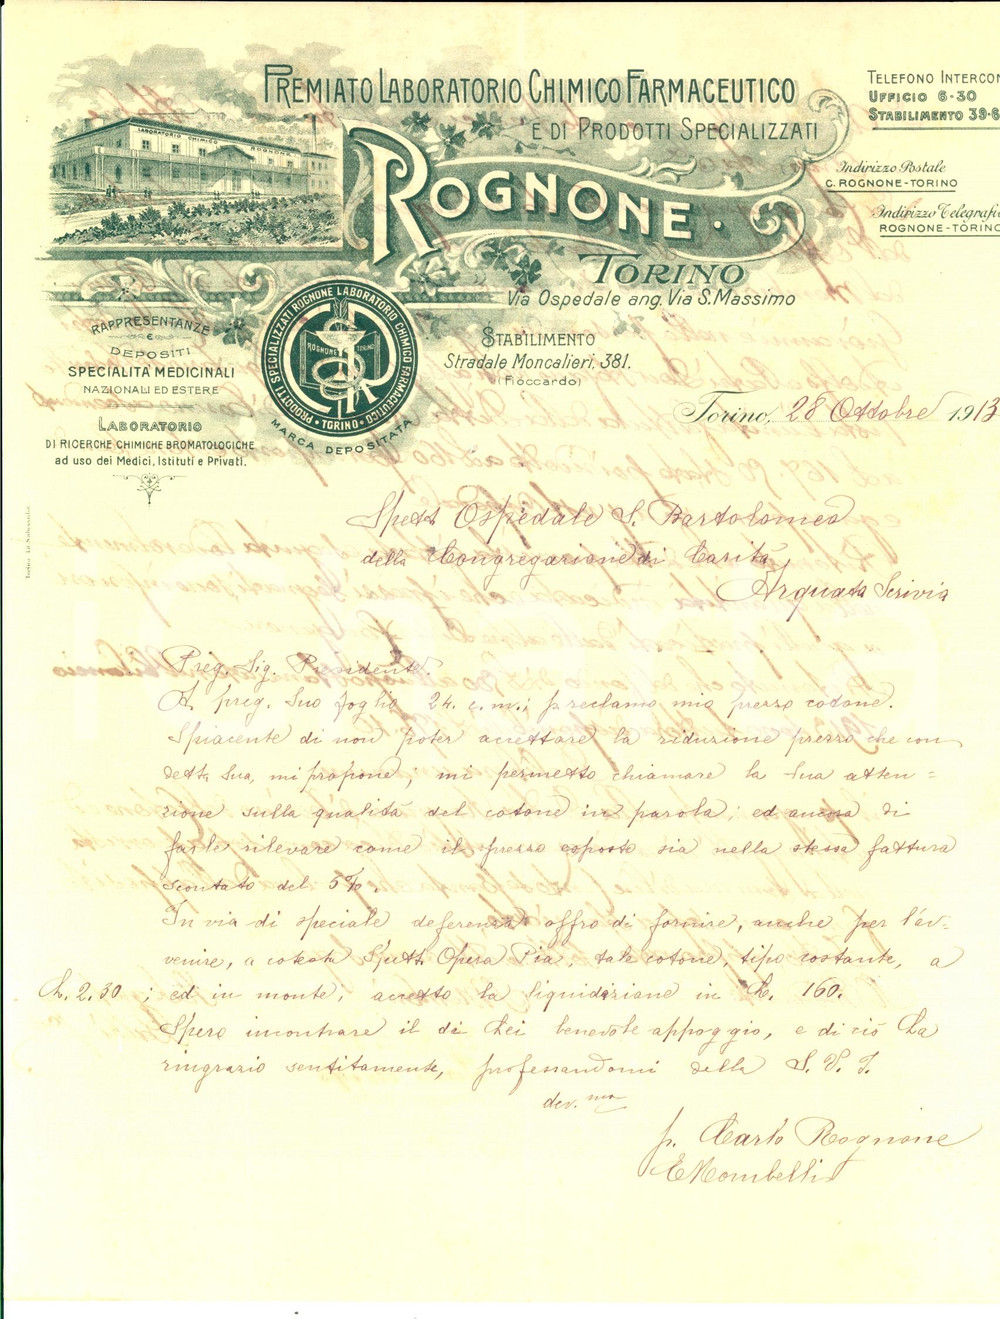 PREMIATO LABORATORIO CHIMICO FARMACEUTICO
E DI PRODOTTI SPECIALIZZATI
ROGNONE.
TORINO
Via Ospedale ang. Via S. Massimo
STABILIMENTO
Stradale Moncalieri, 381.
(Fioccardo)
LABORATORIO CHIMICO ROGNONE
TELEFONO INTERCOM
UFFICIO 6-30
STABILIMENTO 39-6
Indirizzo Postale
C. ROGNONE-TORINO
Indirizzo Telegrafic
ROGNONE-TORINO
RAPPRESENTANZE
E
DEPOSITI
SPECIALITÀ MEDICINALI
NAZIONALI ED ESTERE
LABORATORIO
DI RICERCHE CHIMICHE BROMATOLOGICHE
ad uso dei Medici, Istituti e Privati.
PRODOTTI SPECIALIZZATI ROGNONE LABORATORIO CHIMICO FARMACEUTICO
• TORINO •
ROGNONE TORINO
MARCA DEPOSITATA
Torino, 28 Ottobre 1913
Spett Ospedale S. Bartolomeo
della Congregazione di Carità
Arquata Scrivia
Preg. Sig. Presidente
A preg. Suo foglio 24. c.m.; p. reclamo mio prezzo cotone.
Spiacente di non poter accettare la riduzione prezzo che con
detto Sua, mi propone, mi permetto chiamare la Sua atten=
zione sulla qualità del cotone in parola; ed ancora di
farle rilevare come il prezzo esposto sia nella stessa fattura
scontato del 5%.
In via di speciale deferenza offro di fornire, anche per l'av-
venire, a cotesta Spett. Opera Pia, tale cotone, tipo costante, a
L. 2.30; ed in monte, accetto la liquidazione in L. 160.
Spero incontrare il di Lei benevole appoggio, e di ciò La
ringrazio sentitamente, professandomi della S. V. I.
dev.mo
p. Carlo Rognone
E Mombelli